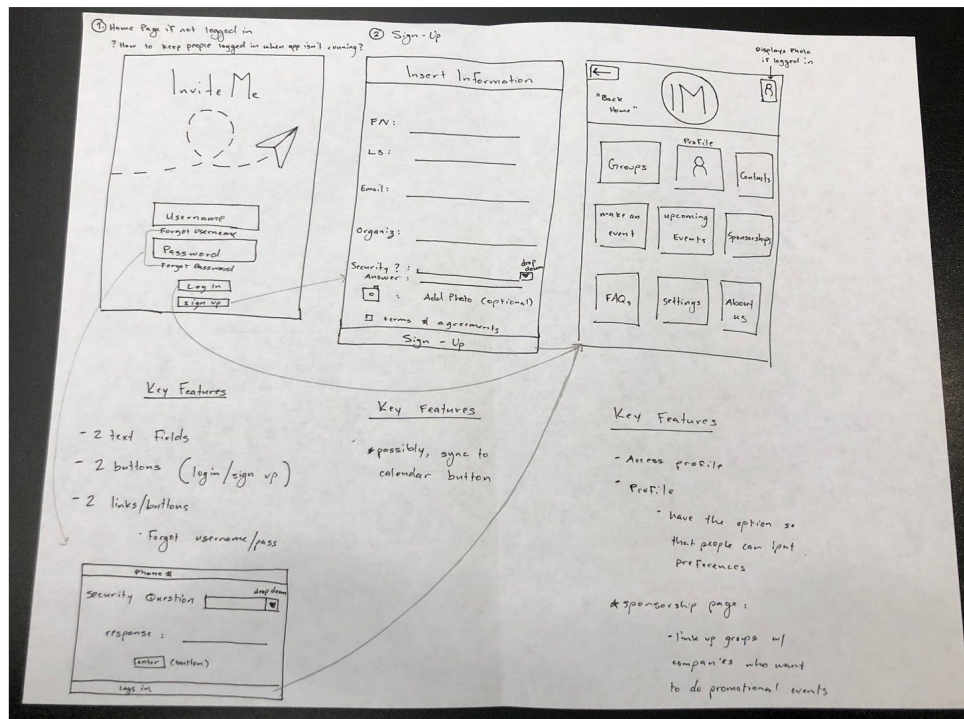 ① Home Page if not logged in
? How to keep people logged in when app isn't running?
Invite Me
Username
Forgot Username
Password
Forgot Password
Log In
sign up
Key Features
- 2 text fields
- 2 buttons (login/sign up)
- 2 links/buttons
- Forgot username/pass
Phone #
drop down
Security Question
response :
enter (button)
logs in
② Sign-Up
Insert Information
FN :
LS :
Email :
Organiz :
drop down
Security ? :
Answer :
: Add Photo (optional)
terms & agreements
Sign - Up
Key Features
* possibly, sync to
calendar button
Displays Photo
if logged in
"Back
Home"
IM
Groups
Profile
Contacts
make an
event
upcoming
Events
Sponsorships
FAQs
settings
About
us
Key Features
- Access profile
- Profile
- have the option so
that people can iput
preferences
* sponsorship page :
- link up groups w/
companies who want
to do promotional events